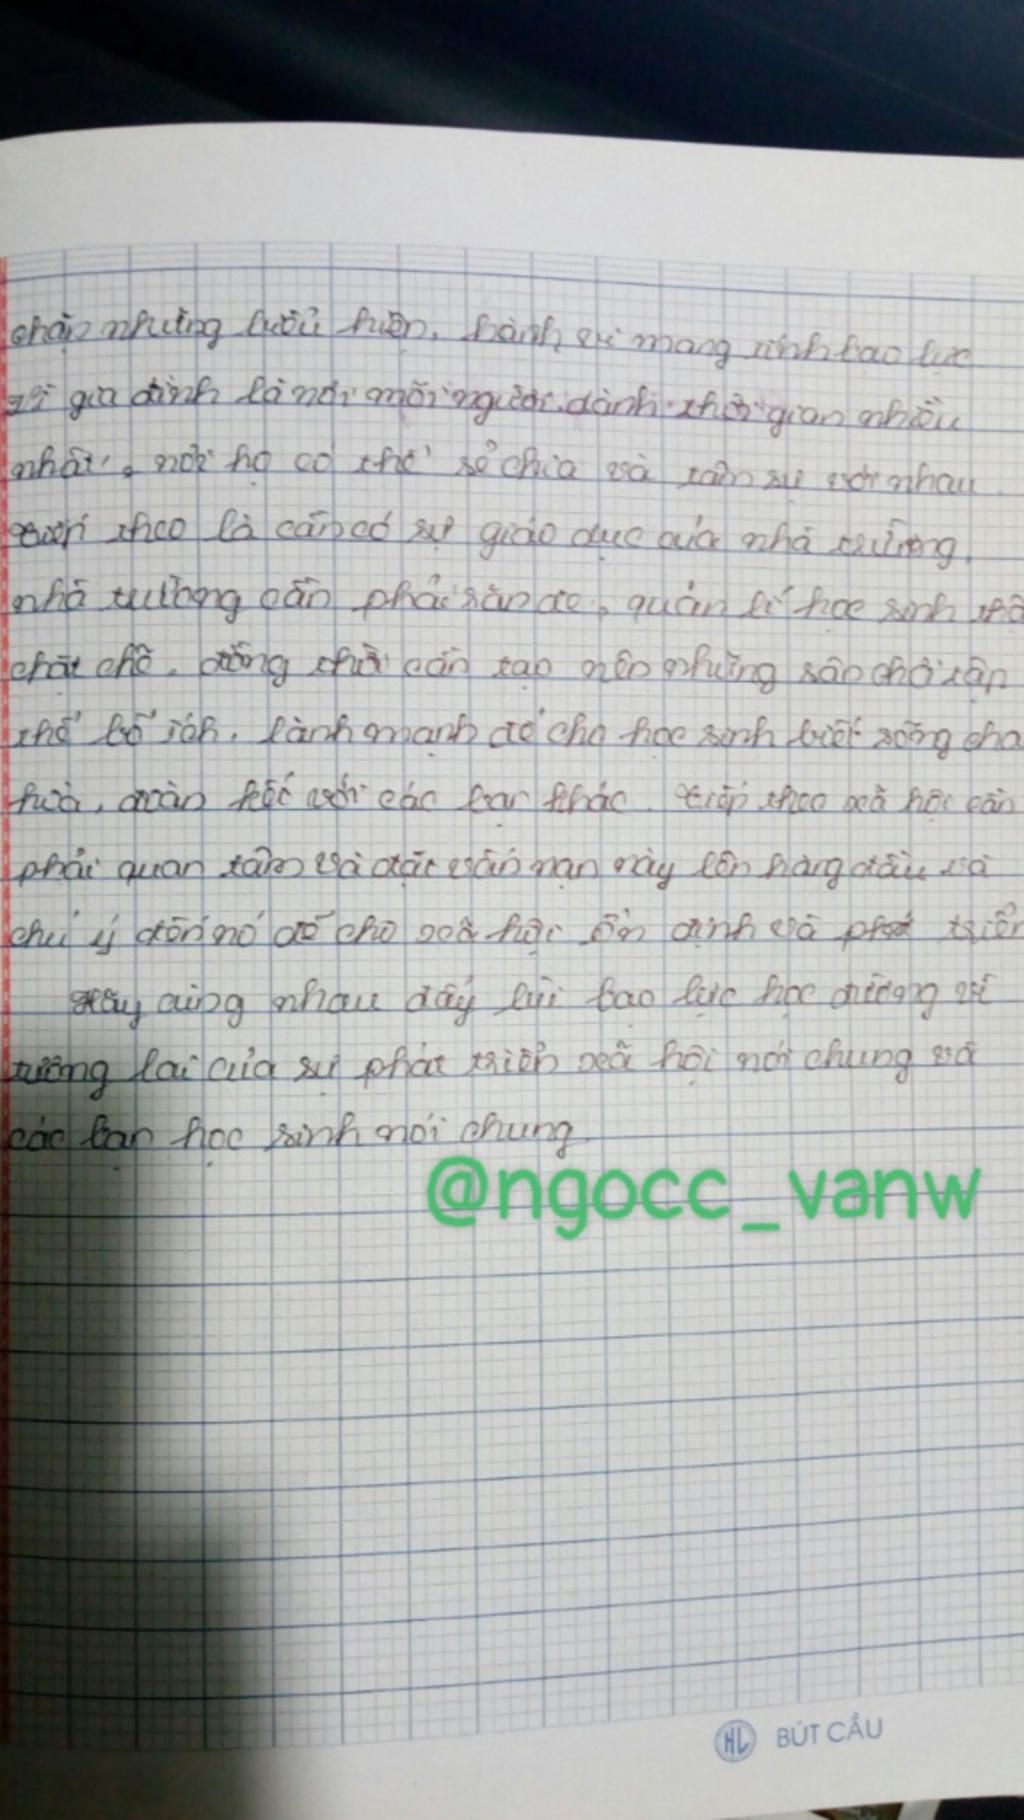 chặn những biểu hiện, hành vi mang tính bạo lực
vì gia đình là nơi mỗi người dành thời gian nhiều
nhất, nơi họ có thể sẻ chia và tâm sự với nhau.
tiếp theo là cần có sự giáo dục của nhà trường,
nhà trường cần phải răn đe, quản lí học sinh
chặt chẽ. đồng thời cần tạo nên những sân chơi tập
thể bổ ích, lành mạnh để cho học sinh biết sống cha
hoà, đoàn kết với các bạn khác. tiếp theo xã hội cần
phải quan tâm và đặt vấn nạn này lên hàng đầu và
chú ý đến nó để cho xã hội ổn định và phát triển
Hãy cùng nhau đẩy lùi bạo lực học đường vì
tương lai của sự phát triển xã hội nói chung và
các bạn học sinh nói chung
@ngocc_vanw
HL BÚT CẦU